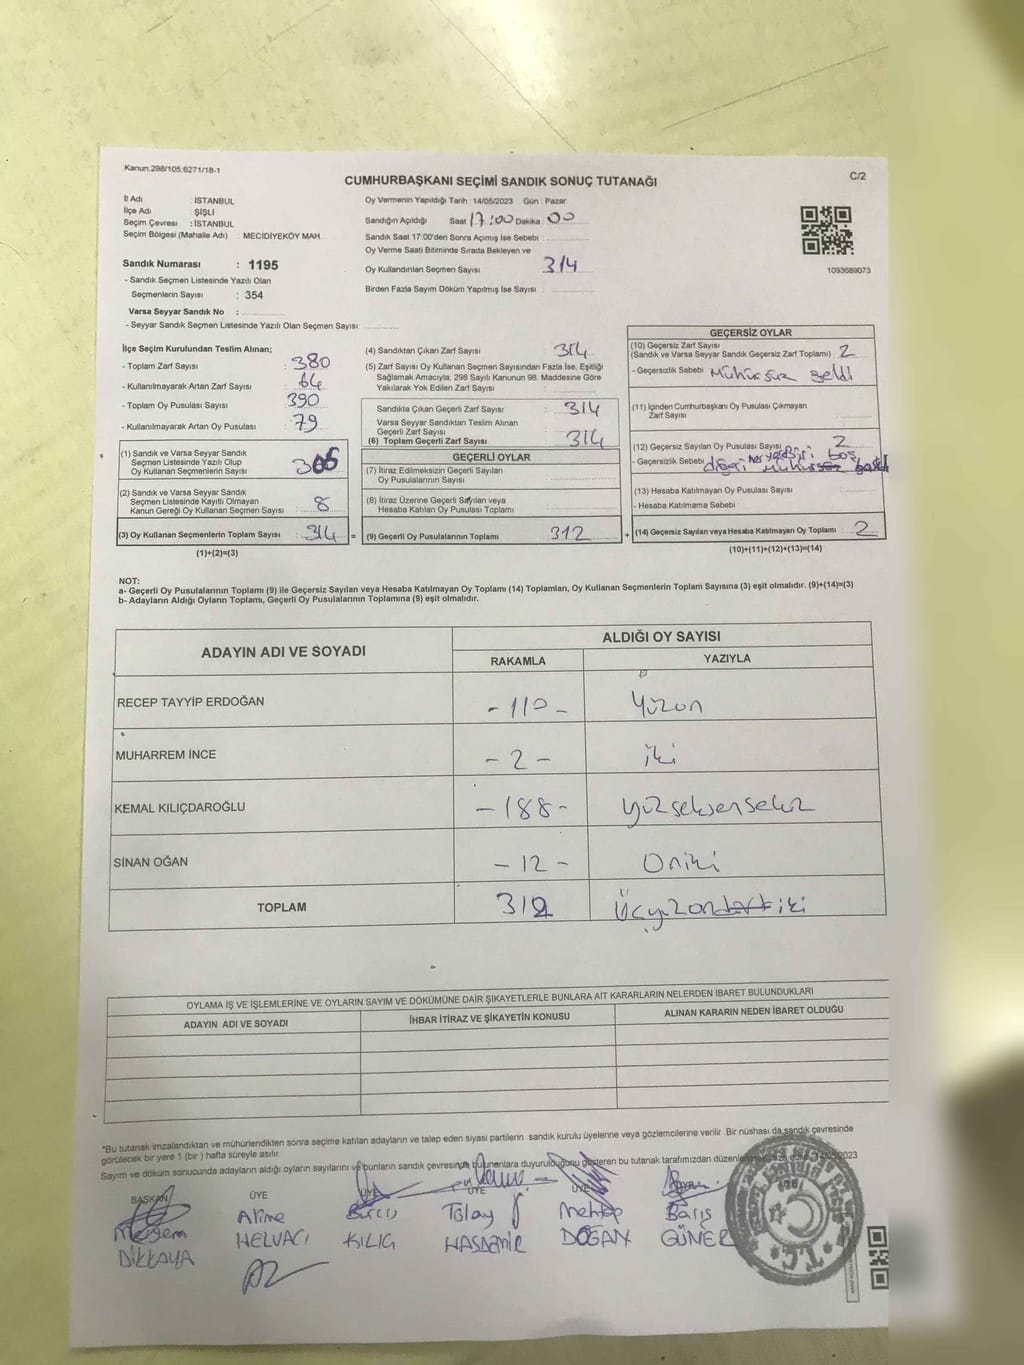 Kanun:298/105;6271/18-1
C/2
CUMHURBAŞKANI SEÇİMİ SANDIK SONUÇ TUTANAĞI
İl Adı İSTANBUL
İlçe Adı : ŞİŞLİ
Seçim Çevresi : İSTANBUL
Seçim Bölgesi (Mahalle Adı) : MECİDİYEKÖY MAH.
Sandık Numarası : 1195
- Sandık Seçmen Listesinde Yazılı Olan
Seçmenlerin Sayısı : 354
Varsa Seyyar Sandık No :
- Seyyar Sandık Seçmen Listesinde Yazılı Olan Seçmen Sayısı:
Oy Vermenin Yapıldığı Tarih : 14/05/2023 Gün : Pazar
Sandığın Açıldığı Saat 17:00 Dakika 00
Sandık Saat 17:00'den Sonra Açılmış İse Sebebi :
Oy Verme Saati Bitiminde Sırada Bekleyen ve
Oy Kullandırılan Seçmen Sayısı : 314
Birden Fazla Sayım Döküm Yapılmış İse Sayısı :
1093689073
İlçe Seçim Kurulundan Teslim Alınan;
- Toplam Zarf Sayısı : 380
- Kullanılmayarak Artan Zarf Sayısı : 64
- Toplam Oy Pusulası Sayısı : 390
- Kullanılmayarak Artan Oy Pusulası : 79
(1) Sandık ve Varsa Seyyar Sandık
Seçmen Listesinde Yazılı Olup
Oy Kullanan Seçmenlerin Sayısı : 306
(2) Sandık ve Varsa Seyyar Sandık
Seçmen Listesinde Kayıtlı Olmayan
Kanun Gereği Oy Kullanan Seçmen Sayısı : 8
(3) Oy Kullanan Seçmenlerin Toplam Sayısı : 314 =
(1)+(2)=(3)
(4) Sandıktan Çıkan Zarf Sayısı : 314
(5) Zarf Sayısı Oy Kullanan Seçmen Sayısından Fazla İse, Eşitliği
Sağlamak Amacıyla, 298 Sayılı Kanunun 98. Maddesine Göre
Yakılarak Yok Edilen Zarf Sayısı :
Sandıkta Çıkan Geçerli Zarf Sayısı : 314
Varsa Seyyar Sandıktan Teslim Alınan
Geçerli Zarf Sayısı
(6) Toplam Geçerli Zarf Sayısı : 314
GEÇERLİ OYLAR
(7) İtiraz Edilmeksizin Geçerli Sayılan
Oy Pusulalarının Sayısı :
(8) İtiraz Üzerine Geçerli Sayılan veya
Hesaba Katılan Oy Pusulası Toplamı :
(9) Geçerli Oy Pusulalarının Toplamı : 312 +
GEÇERSİZ OYLAR
(10) Geçersiz Zarf Sayısı
(Sandık ve Varsa Seyyar Sandık Geçersiz Zarf Toplamı) : 2
- Geçersizlik Sebebi : Mühürsüz geldi
(11) İçinden Cumhurbaşkanı Oy Pusulası Çıkmayan
Zarf Sayısı
(12) Geçersiz Sayılan Oy Pusulası Sayısı : 2
- Geçersizlik Sebebi : boş
(13) Hesaba Katılmayan Oy Pusulası Sayısı :
- Hesaba Katılmama Sebebi :
(14) Geçersiz Sayılan veya Hesaba Katılmayan Oy Toplamı : 2
(10)+(11)+(12)+(13)=(14)
NOT:
a- Geçerli Oy Pusulalarının Toplamı (9) ile Geçersiz Sayılan veya Hesaba Katılmayan Oy Toplamı (14) Toplamları, Oy Kullanan Seçmenlerin Toplam Sayısına (3) eşit olmalıdır. (9)+(14)=(3)
b- Adayların Aldığı Oyların Toplamı, Geçerli Oy Pusulalarının Toplamına (9) eşit olmalıdır.
ADAYIN ADI VE SOYADI ALDIĞI OY SAYISI
RAKAMLA YAZIYLA
RECEP TAYYİP ERDOĞAN - 110 - Yüzon
MUHARREM İNCE - 2 - iki
KEMAL KILIÇDAROĞLU - 188 - Yüzseksensekiz
SİNAN OĞAN - 12 - Oniki
TOPLAM 312 Üçyüzondört iki
OYLAMA İŞ VE İŞLEMLERİNE VE OYLARIN SAYIM VE DÖKÜMÜNE DAİR ŞİKAYETLERLE BUNLARA AİT KARARLARIN NELERDEN İBARET BULUNDUKLARI
ADAYIN ADI VE SOYADI İHBAR İTİRAZ VE ŞİKAYETİN KONUSU ALINAN KARARIN NEDEN İBARET OLDUĞU
*Bu tutanak imzalandıktan ve mühürlendikten sonra seçime katılan adayların ve talep eden siyasi partilerin sandık kurulu üyelerine veya gözlemcilerine verilir. Bir nüshası da sandık çevresinde
görülecek bir yere 1 (bir) hafta süreyle asılır.
Sayım ve döküm sonucunda adayların aldığı oyların sayılarını ve bunların sandık çevresinde bulunanlara duyurulduğunu gösteren bu tutanak tarafımızdan 14/05/2023
BAŞKAN ÜYE ÜYE ÜYE ÜYE ÜYE
Meryem Burcu Tülay Mehtap Barış
DİKKAYA HELVACI KILIÇ DOĞAN GÜNER
T.C.